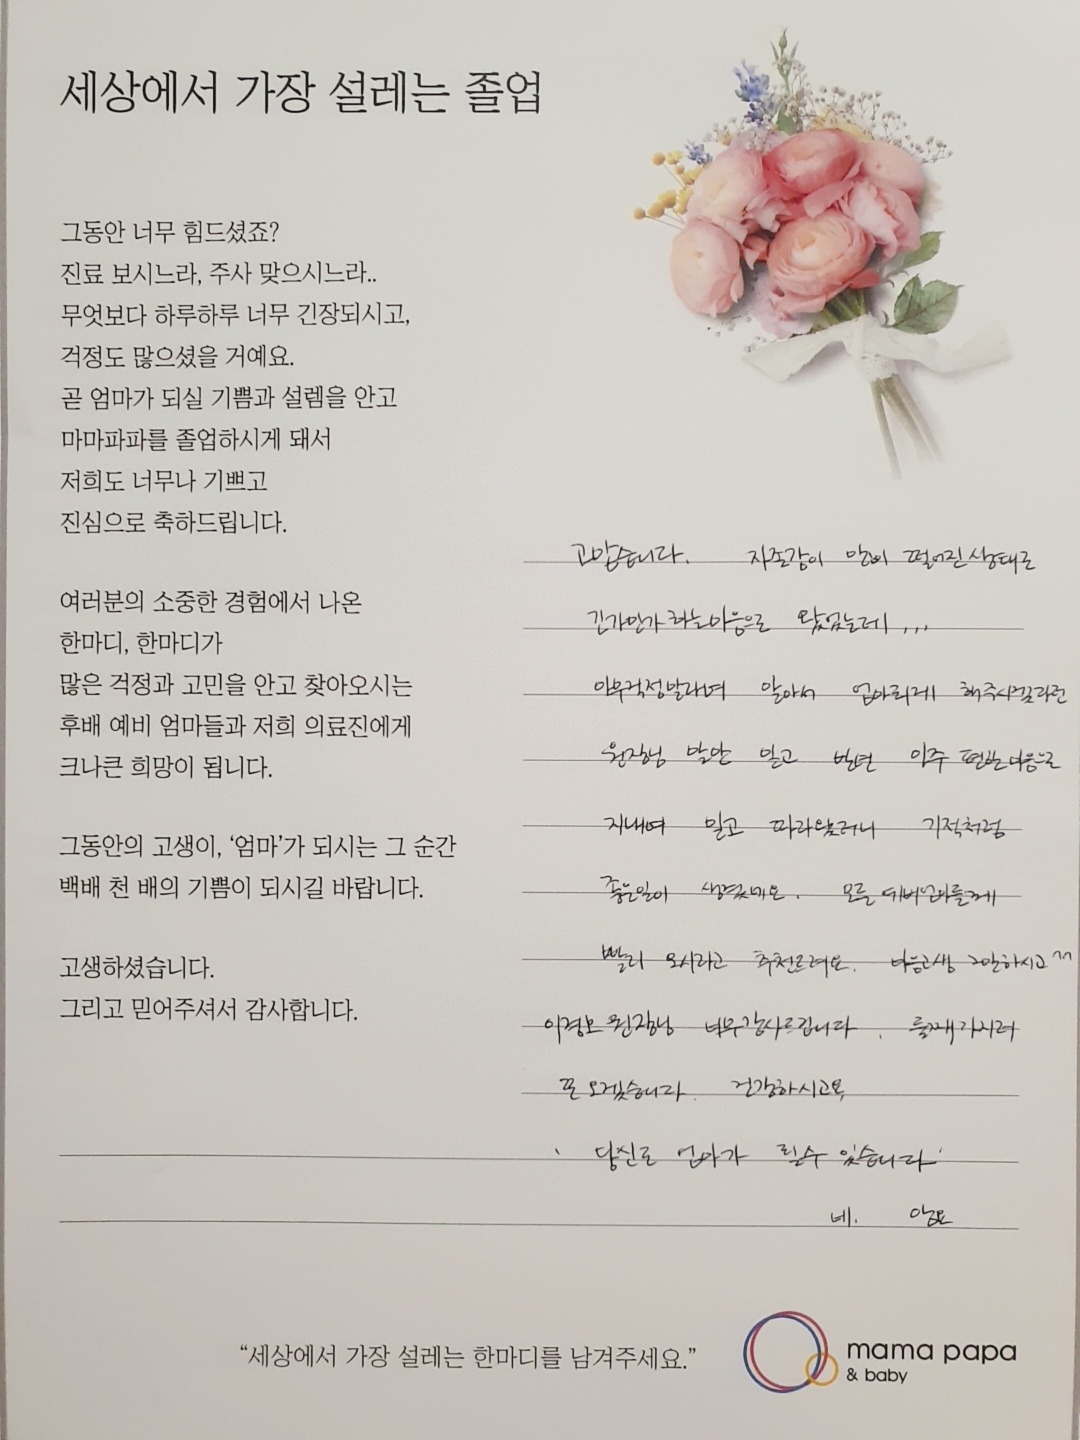 세상에서 가장 설레는 졸업
그동안 너무 힘드셨죠?
진료 보시느라, 주사 맞으시느라..
무엇보다 하루하루 너무 긴장되시고,
걱정도 많으셨을 거예요.
곧 엄마가 되실 기쁨과 설렘을 안고
마마파파를 졸업하시게 돼서
저희도 너무나 기쁘고
진심으로 축하드립니다.
여러분의 소중한 경험에서 나온
한마디, 한마디가
많은 걱정과 고민을 안고 찾아오시는
후배 예비 엄마들과 저희 의료진에게
크나큰 희망이 됩니다.
그동안의 고생이, ‘엄마’가 되시는 그 순간
백배 천 배의 기쁨이 되시길 바랍니다.
고생하셨습니다.
그리고 믿어주셔서 감사합니다.
고맙습니다. 자존감이 많이 떨어진 상태로
긴가민가 하는 마음으로 왔었는데...
아무걱정말라며 알아서 엄마되게 해주시겠다던
원장님 말만 믿고 아주 편한 마음으로
지내며 믿고 따라왔더니 기적처럼
좋은일이 생겼네요. 모든 예비엄마들께
빨리 오시라고 추천드려요. 마음고생 그만하시고^^
이경모 원장님 너무 감사드립니다. 둘째 가지러
또 오겠습니다. 건강하시고요
' 당신도 엄마가 될수 있습니다. '
네.
“세상에서 가장 설레는 한마디를 남겨주세요.”
mama papa
& baby